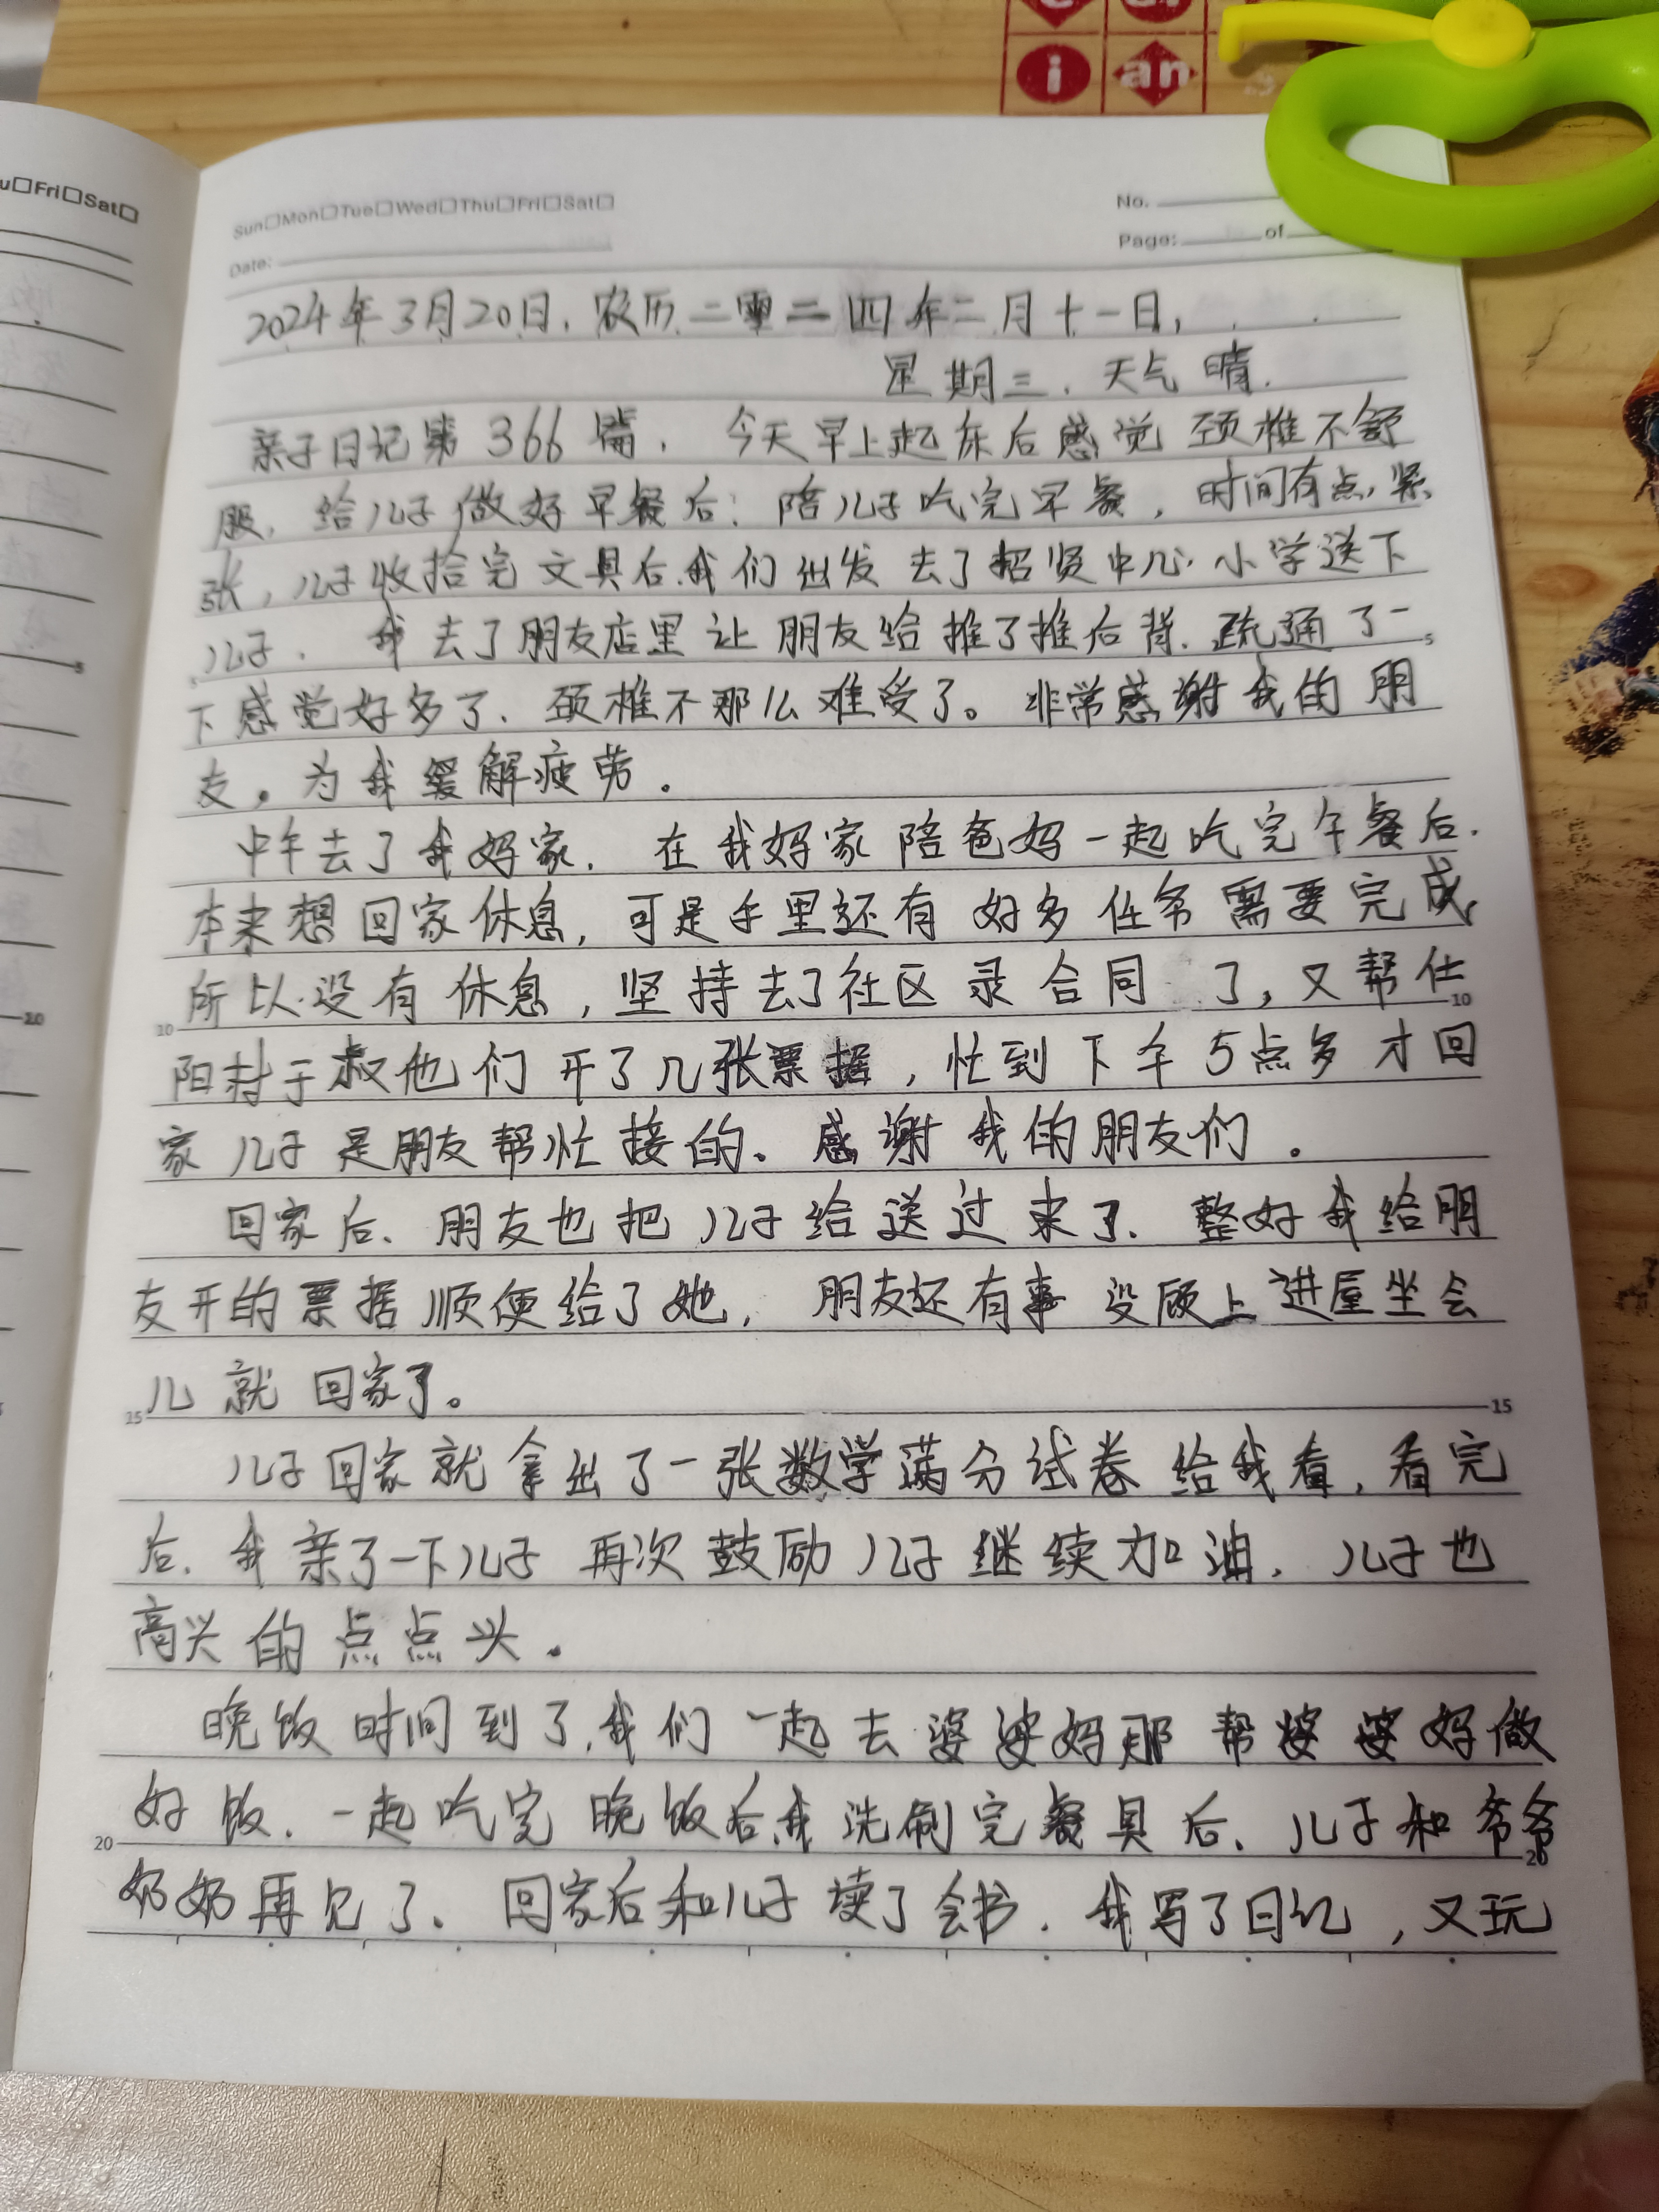 u□Fri□Sat□
i an
Sun□Mon□Tue□Wed□Thu□Fri□Sat□
No.
Date:
Page: of
2024年3月20日,农历二零二四年二月十一日,
星期三.天气晴.
亲子日记第366篇,今天早上起床后感觉颈椎不舒
服,给儿子做好早餐后:陪儿子吃完早餐,时间有点紧
张,儿子收拾完文具后.我们出发去了招贤中心小学送下
儿子.我去了朋友店里让朋友给推了推后背.疏通了一
下感觉好多了、颈椎不那么难受了。非常感谢我的朋
友。为我缓解疲劳。
中午去了我妈家.在我妈家陪爸妈一起吃完午餐后.
本来想回家休息,可是手里还有好多任务需要完成,
所以没有休息,坚持去了社区录合同了,又帮仕
阳村于叔他们开了几张票据,忙到下午5点多才回
家儿子是朋友帮忙接的、感谢我的朋友们。
回家后、朋友也把儿子给送过来了.整好我给朋
友开的票据顺便给了她,朋友还有事没顾上进屋坐会
儿就回家了。
儿子回家就拿出了一张数学满分试卷给我看,看完
后.我亲了一下儿子再次鼓励儿子继续加油.儿子也
高兴的点点头.
晚饭时间到了.我们一起去婆婆妈那帮婆婆妈做
好饭.一起吃完晚饭后.我洗刷完餐具后、儿子和爷爷
奶奶再见了、回家后和儿子读了会书.我写了日记,又玩
5
5
10
10
10
15
15
20
20